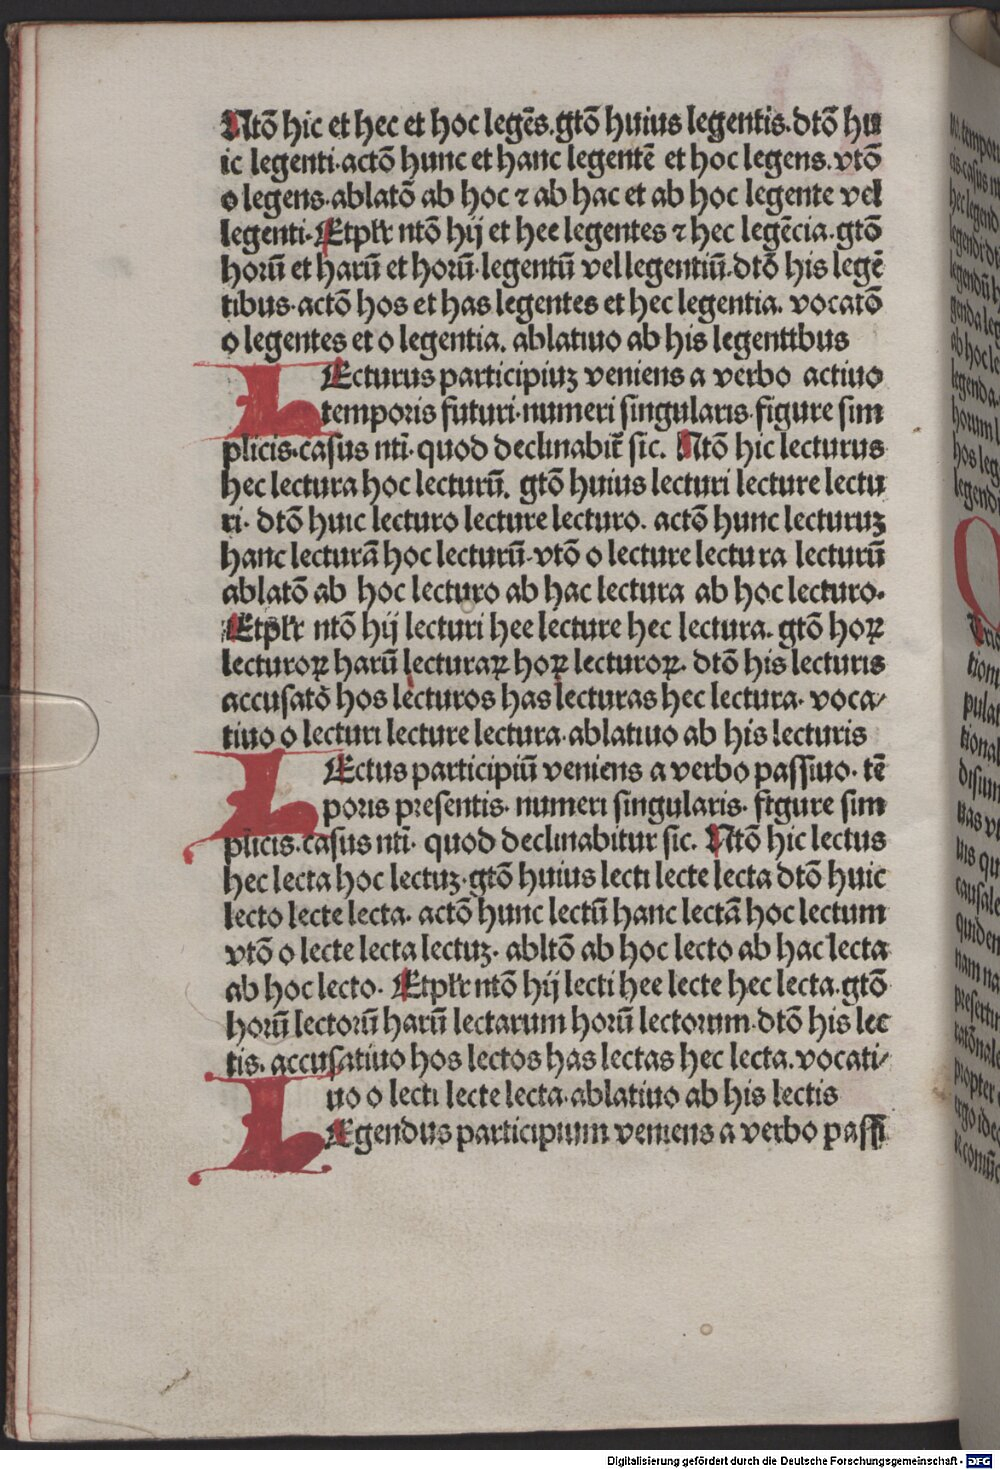 Ntō hic et hec et hoc legēs. gtō huius legentis. dtō hu
ic legenti. actō hunc et hanc legentē et hoc legens. vtō
o legens. ablatō ab hoc ⁊ ab hac et ab hoc legente vel
legenti. Etplr ntō hij et hee legentes ⁊ hec legēcia. gtō
horū et harū et horū legentū vel legentiū. dtō his legē
tibus. actō hos et has legentes et hec legentia. vocatō
o legentes et o legentia. ablatiuo ab his legentibus
LEcturus participiuꝫ veniens a verbo actiuo
temporis futuri. numeri singularis. figure sim
plicis. casus nti. quod declinabit̄ sic. Ntō hic lecturus
hec lectura hoc lecturū. gtō huius lecturi lecture lectu
ri. dtō huic lecturo lecture lecturo. actō hunc lecturuꝫ
hanc lecturā hoc lecturū. vtō o lecture lectura lecturū
ablatō ab hoc lecturo ab hac lectura ab hoc lecturo.
Etplr ntō hij lecturi hee lecture hec lectura. gtō hoꝝ
lecturoꝝ harū lecturaꝝ hoꝝ lecturoꝝ. dtō his lecturis
accusatō hos lecturos has lecturas hec lectura. voca/
tiuo o lecturi lecture lectura. ablatiuo ab his lecturis
LEctus participiū veniens a verbo passiuo. tē
poris presentis. numeri singularis. figure sim
plicis. casus nti. quod declinabitur sic. Ntō hic lectus
hec lecta hoc lectuꝫ. gtō huius lecti lecte lecta dtō huic
lecto lecte lecta. actō hunc lectū hanc lectā hoc lectum
vtō o lecte lecta lectuꝫ. abltō ab hoc lecto ab hac lecta
ab hoc lecto. Etplr ntō hij lecti hee lecte hec lecta. gtō
horū lectorū harū lectarum horū lectorum. dtō his lec
tis. accusatiuo hos lectos has lectas hec lecta. vocati/
uo o lecti lecte lecta. ablatiuo ab his lectis
LEgendus participium veniens a verbo passi
Digitalisierung gefördert durch die Deutsche Forschungsgemeinschaft - DFG